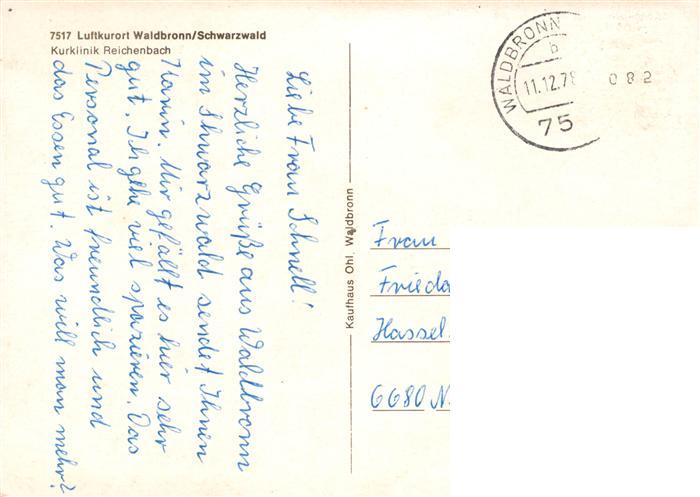 7517 Luftkurort Waldbronn/Schwarzwald
Kurklinik Reichenbach
Liebe Frau Schnell!
Herzliche Grüße aus Waldbronn
im Schwarzwald sendet Ihnen
Karin. Mir gefällt es hier sehr
gut. Ich gehe viel spazieren. Das
Personal ist freundlich und
das Essen gut. Was will man mehr?
Kaufhaus Ohl, Waldbronn
WALDBRONN
b
11.12.78
75
082
Frau
Frieda
Hassel
6680 N